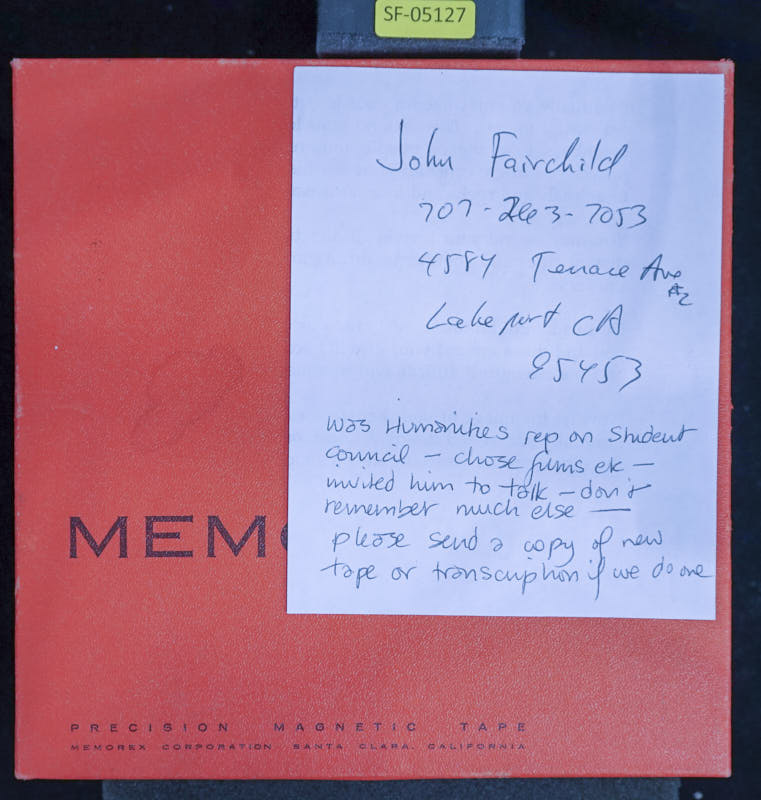 SF-05127
John Fairchild
707-263-7053
4584 Terrace Ave
#2
Lakeport CA
95453
was Humanities rep on Student
council – chose films etc –
invited him to talk – don't
remember much else —
please send a copy of new
tape or transcription if we do one
MEMO
PRECISION MAGNETIC TAPE
MEMOREX CORPORATION, SANTA CLARA, CALIFORNIA